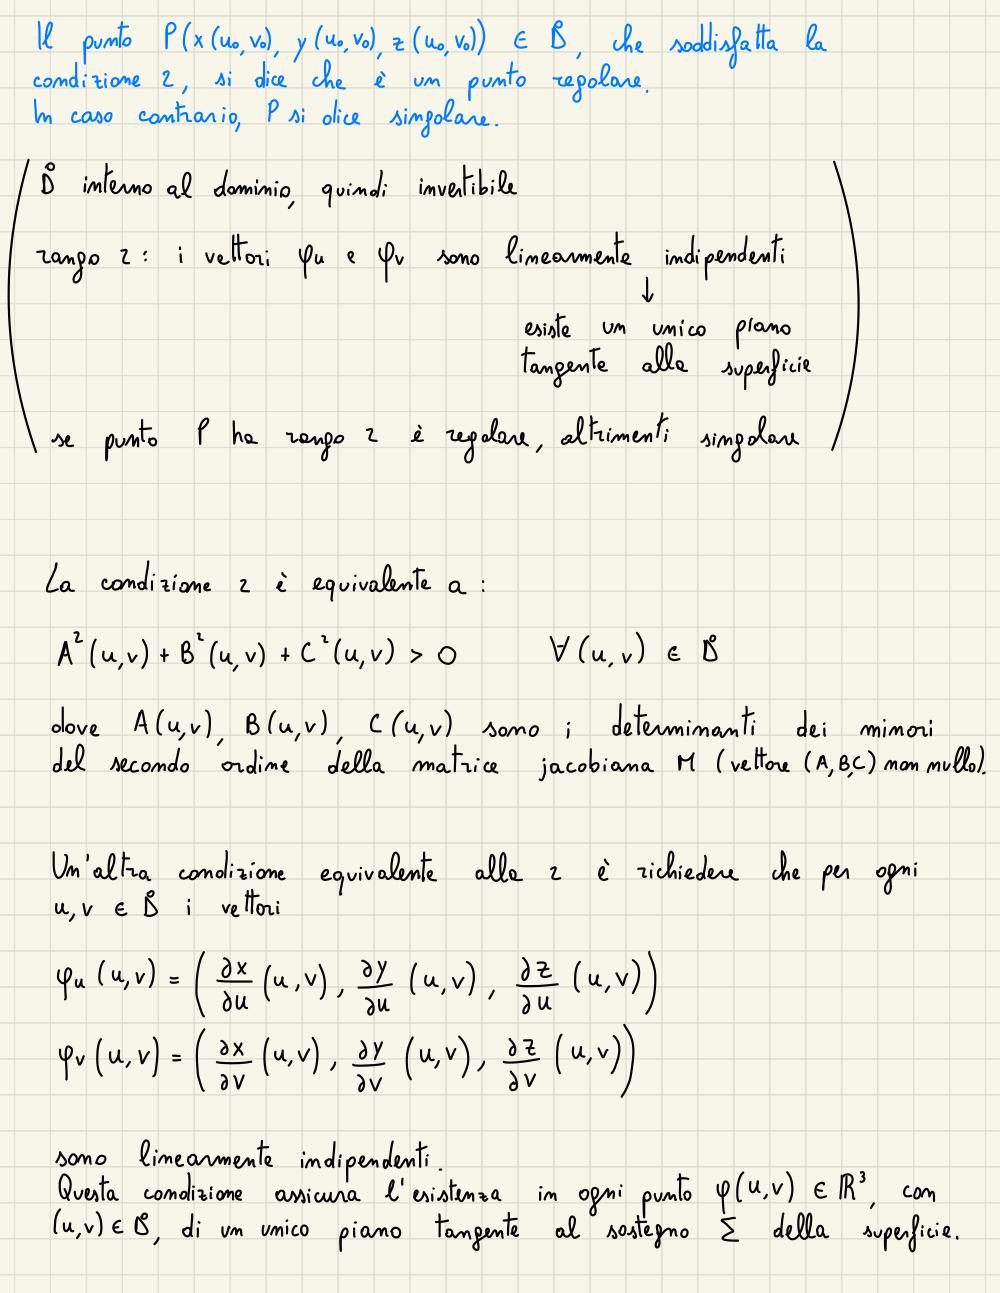 Il punto P(x(u₀,v₀), y(u₀,v₀), z(u₀,v₀)) ∈ D̊, che soddisfatta la
condizione 2, si dice che è un punto regolare.
In caso contrario, P si dice singolare.
D̊ interno al dominio, quindi invertibile
rango 2: i vettori φu e φv sono linearmente indipendenti
↓
esiste un unico piano
tangente alla superficie
se punto P ha rango 2 è regolare, altrimenti singolare
La condizione 2 è equivalente a:
A²(u,v) + B²(u,v) + C²(u,v) > 0 ∀(u,v) ∈ D̊
dove A(u,v), B(u,v), C(u,v) sono i determinanti dei minori
del secondo ordine della matrice jacobiana M (vettore (A,B,C) non nullo).
Un'altra condizione equivalente alla 2 è richiedere che per ogni
u,v ∈ D̊ i vettori
φu(u,v) = (∂x/∂u (u,v), ∂y/∂u (u,v), ∂z/∂u (u,v))
φv(u,v) = (∂x/∂v (u,v), ∂y/∂v (u,v), ∂z/∂v (u,v))
sono linearmente indipendenti.
Questa condizione assicura l'esistenza in ogni punto φ(u,v) ∈ ℝ³, con
(u,v) ∈ D̊, di un unico piano tangente al sostegno Σ della superficie.